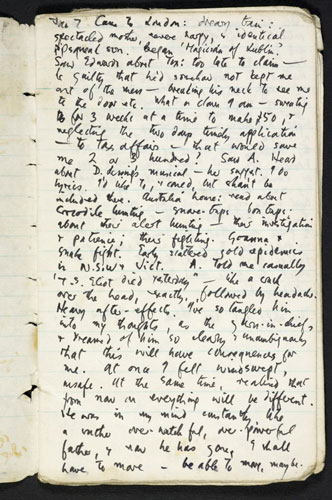 Jan 7 Came to London: dreary train:
spectacled mother never happy, & identical
son. Began 'Magician of Lublin'.
Saw Edwards about Tax: too late to claim —
he guilty, that he'd somehow not kept me
out of the mess — breaking his neck to see me
to the door etc. What a clown I am — sweating
for 3 weeks at a time to make £50, &
neglecting the two days timely application
to tax affairs — that would save
me 2 or 3 hundred! Saw A. Head
about musical — he suggest I do
lyrics. I'd who to, & could, but shan't be
included there. Australia house: read about
Crocodile hunting — snare-traps box traps:
about their alert hunting — their investigation
& patience; their fighting. Goanna &
snake fight. Early scattered gold epidemics
in N.S.W & Vict. A told me casually
"T.S. Eliot died yesterday" — like a crack
over the head, exactly, followed by headache.
Heavy after-effects. I've so tangled him
into my thoughts, as the guru-in-chief,
& dreamed of him so clearly & unambiguously
that this will have consequences for
me. At once I felt windswept,
unsafe. At the same time, realised that
from now on everything will be different.
He was in my mind constantly, like
a rather over-watchful, over-powerful
father, & now he has gone, I shall
have to move — be able to move, maybe.